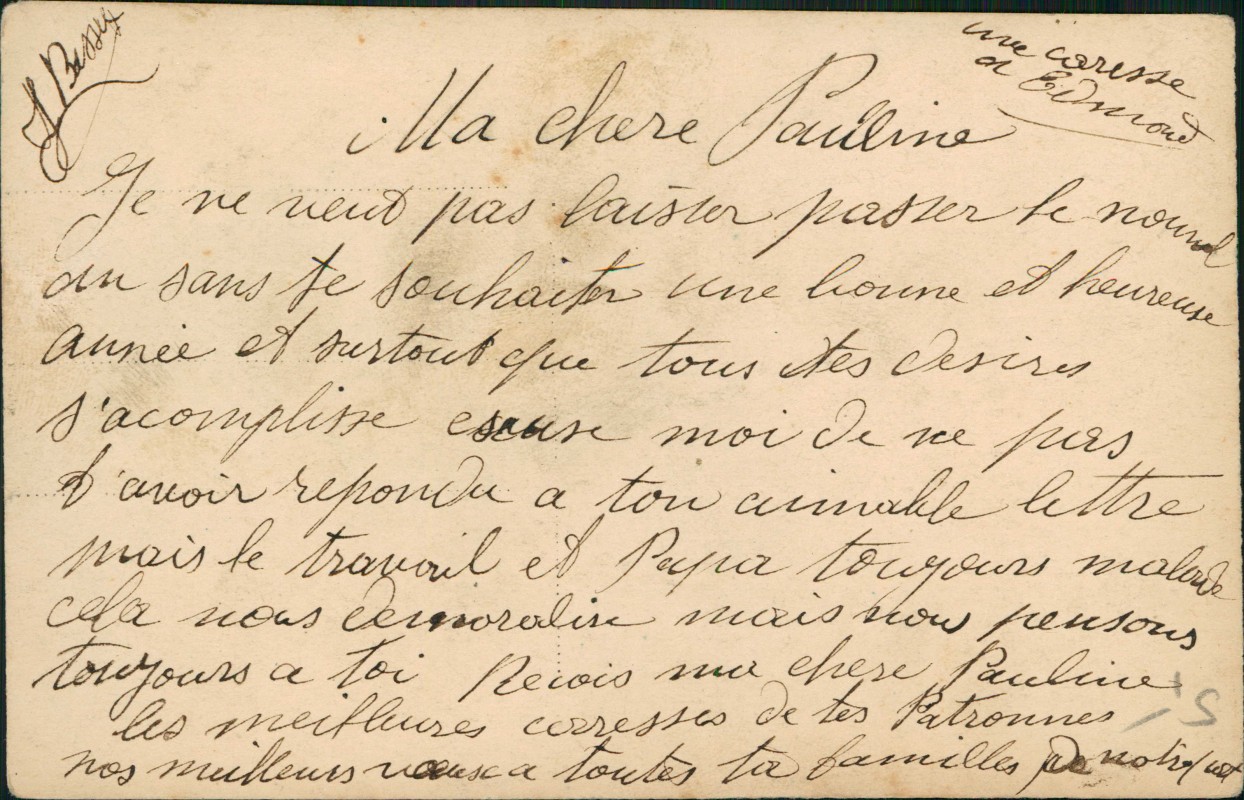 J Bessex
une caresse
a Edmond
Ma chere Pauline
Je ne veut pas laisser passer le nouvel
an sans te souhaiter une bonne et heureuse
année et surtout que tous tes desires
s'acomplisse escuse moi de ne pas
t'avoir repondu a ton aimable lettre
mais le travail et Papa toujours malade
cela nous demoralise mais nous pensons
toujours a toi Recois ma chere Pauline
les meilleures carresses de tes Patronnes
nos meilleurs voeux a toutes ta familles de notre